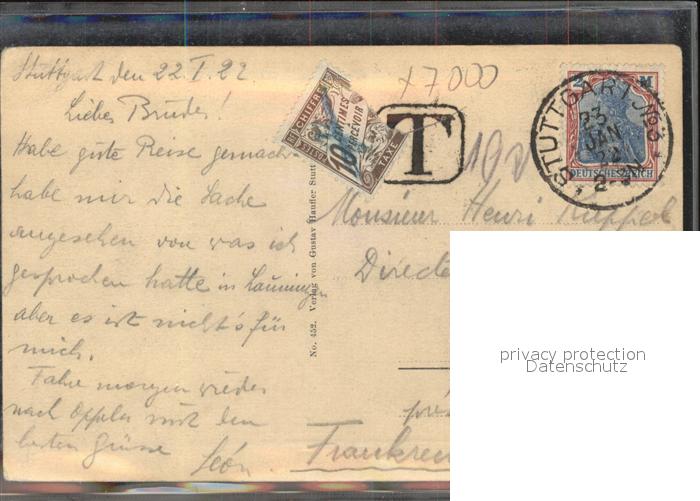 Stuttgart den 22.I.22
Lieber Bruder!
Habe gute Reise gemacht
habe mir die Sache
angesehen von was ich
gesprochen hatte in
aber es ist nichts für
mich.
Fahre morgen wieder
nach mit den
besten Grüsse
Léon.
No. 452. Verlag von Gustav Haufler Stutt
CHIFFRE
TAXE
10
CENTIMES
A PERCEVOIR
T
x7000
STUTTGART
23
JAN
22
2-3N
DEUTSCHES REICH
Monsieur Henri
Directe
Frankrei
privacy protection
Datenschutz